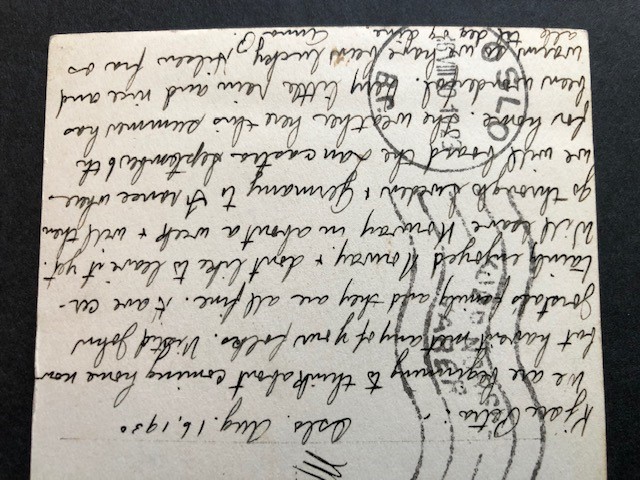 Oslo. Aug. 16, 1930
Kjære Petra :-
We are beginning to think about coming home now
but haven't met any of your folks. Visited John
Jordals family and they are all fine. Have cer-
tainly enjoyed Norway, & dont like to leave it yet.
Will leave Norway in about a week & will then
go through Sweden & Germany to France where
we will board the Lancastria September 6th
for home. The weather here this summer has
been wonderful. Very little rain and nice and
warm so we have been lucky. Hilsen fra os
alle til deg og dine
Anna O.
OSLO
BR